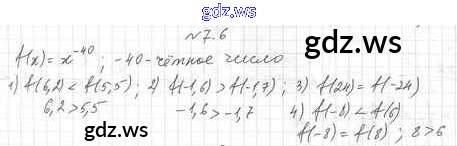 gdz.ws
№7.6
f(x) = x⁻⁴⁰ ; -40 - чётное число
1) f(6,2) < f(5,5) ; 2) f(-1,6) > f(-1,7) ; 3) f(24) = f(-24)
6,2 > 5,5 -1,6 > -1,7 4) f(-8) < f(6)
f(-8) = f(8) ; 8 > 6
gdz.ws
gdz.ws
gdz.ws